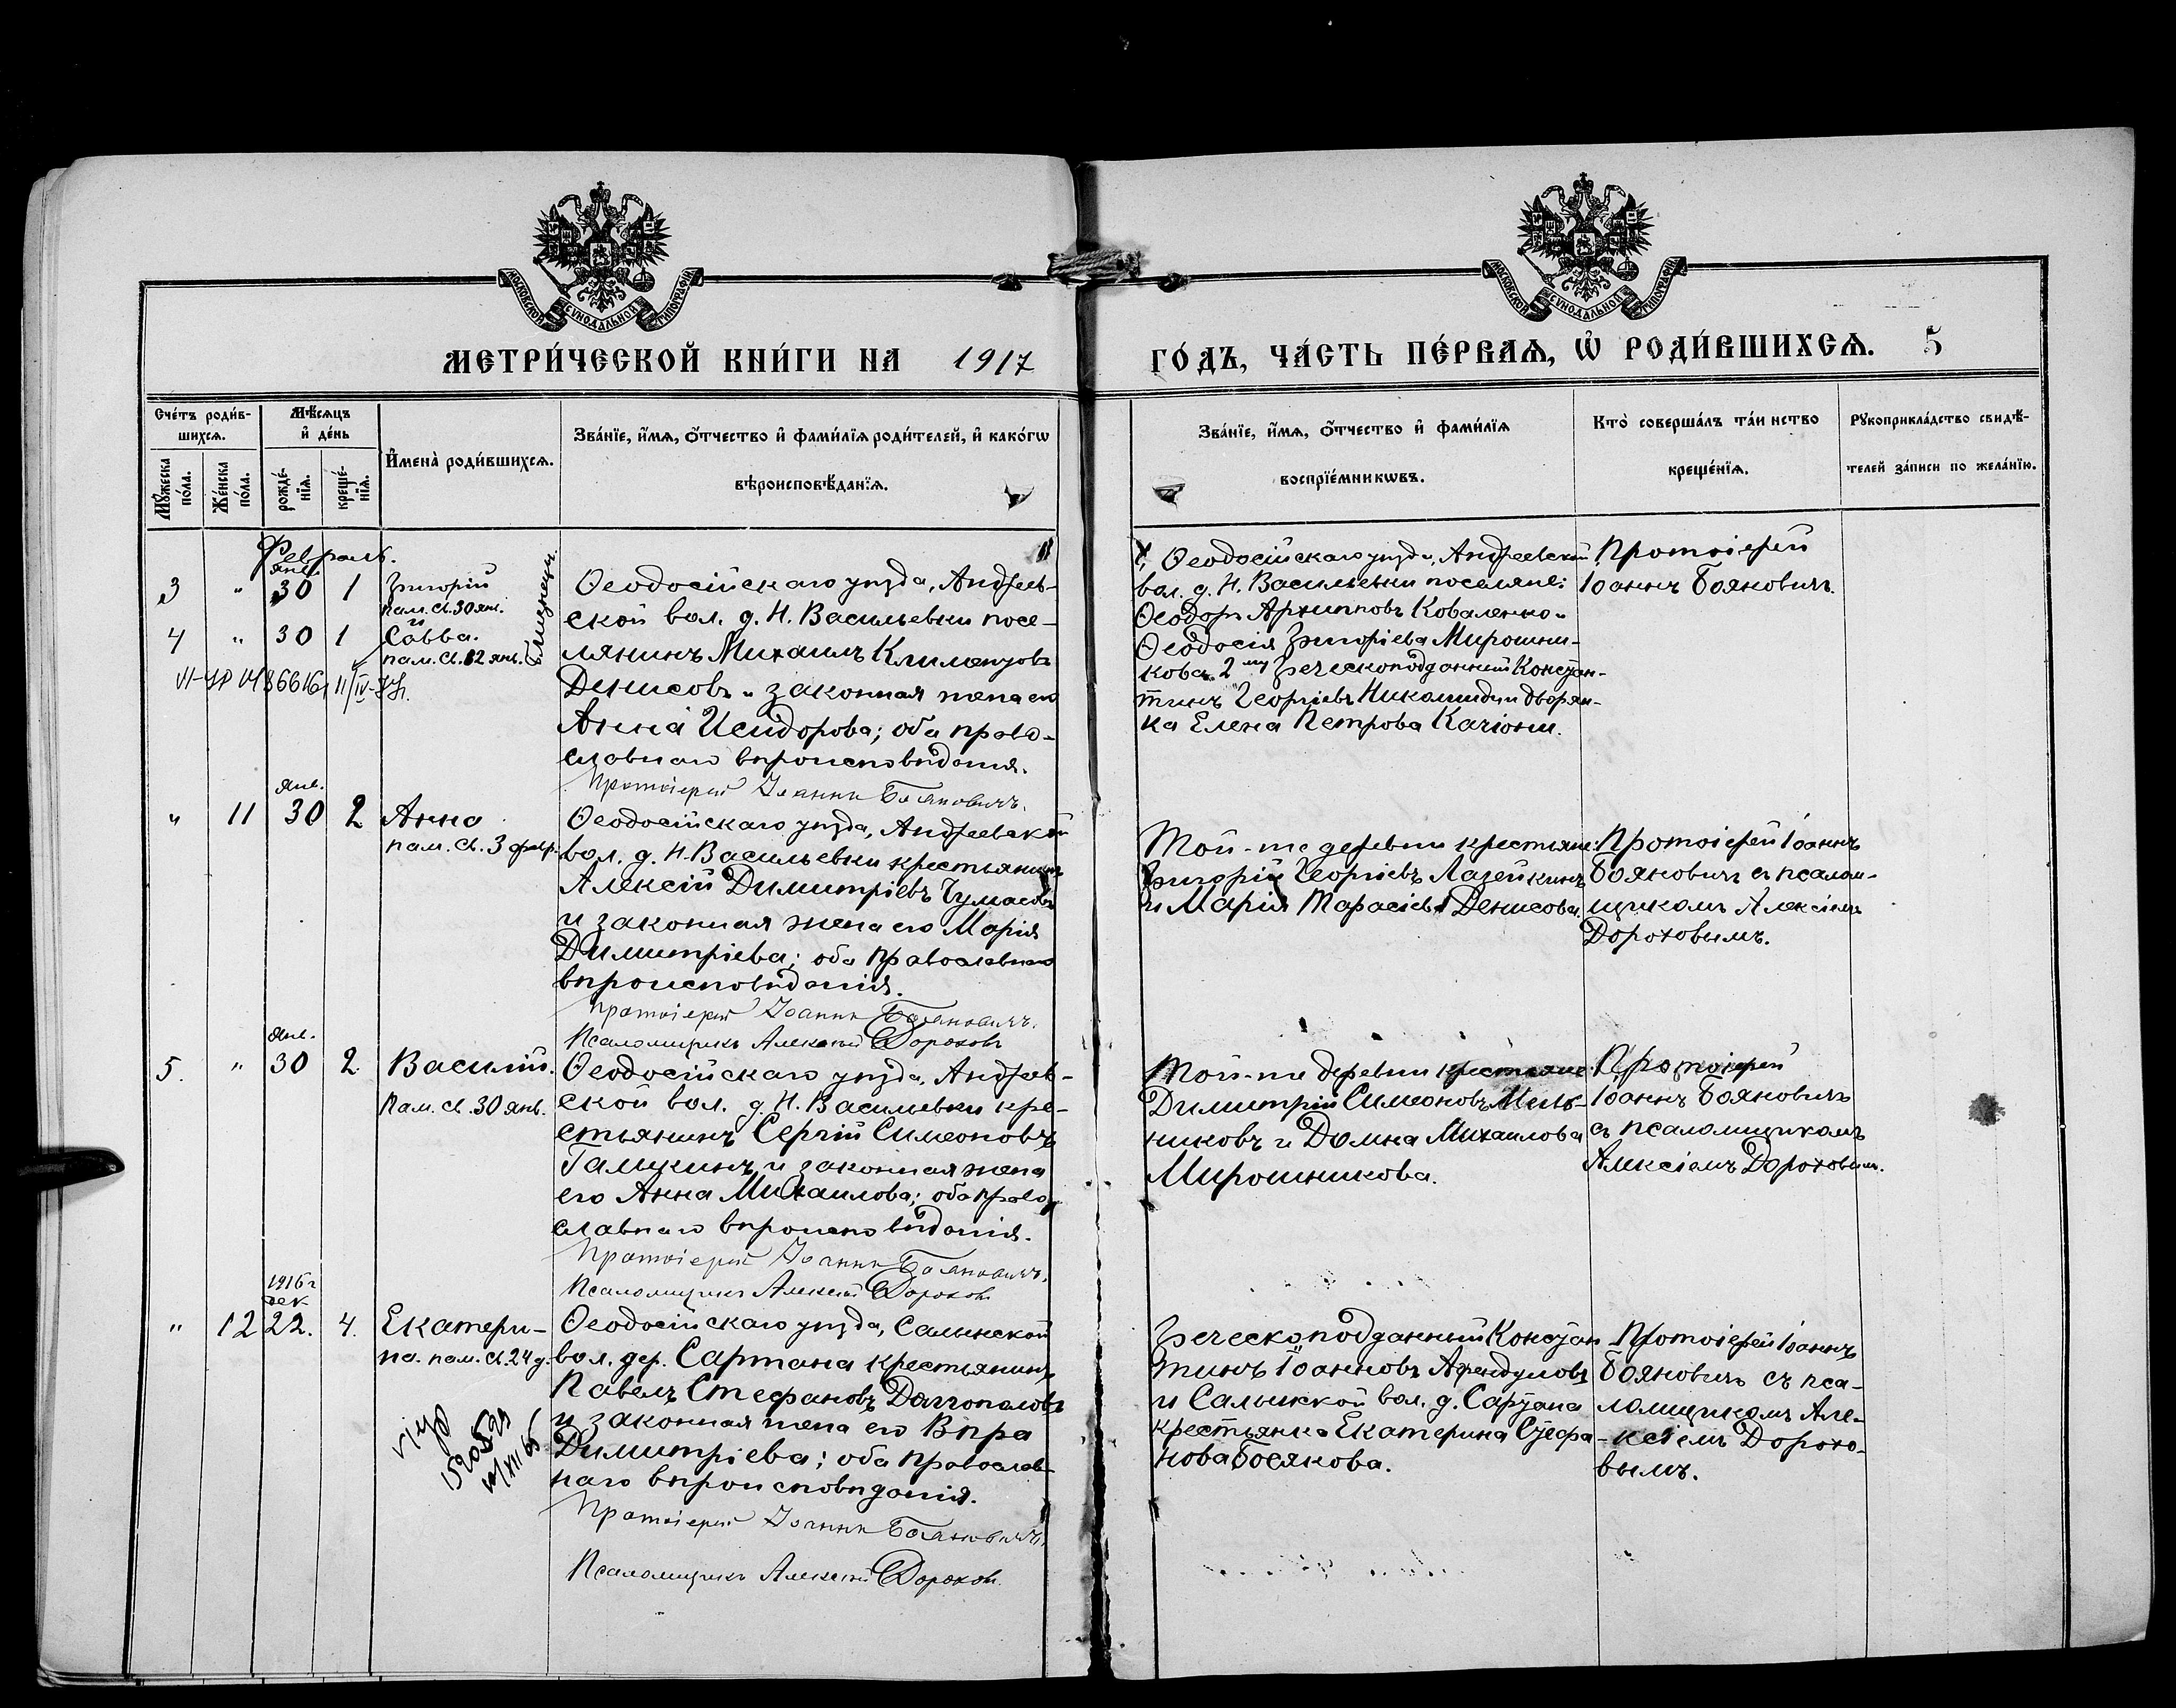 МОСКОВСКОЙ СѴНОДАЛЬНОЙ ТИПОГРАФІИ
МОСКОВСКОЙ СѴНОДАЛЬНОЙ ТИПОГРАФІИ
МЕТРИ́ЧЕСКОЙ КНИ́ГИ НА 1917 ГО́ДЪ, ЧА́СТЬ ПЕ́РВАѦ, Ѡ҆ РОДИ́ВШИХСѦ. 5
Сче́тъ роди́в-
шихсѧ.
Мꙋ́жеска
по́ла.
Же́нска
по́ла.
Мѣ́сѧцъ
и҆ де́нь
рожде́-
нїѧ.
креще́-
нїѧ.
И҆мена̀ роди́вшихсѧ.
Зва́нїе, и҆́мѧ, ѻ҆́тчество и҆ фами́лїѧ роди́телей, и҆ како́гѡ
вѣроисповѣ́данїѧ.
Зва́нїе, и҆́мѧ, ѻ҆́тчество и҆ фами́лїѧ
воспрїе́мникѡвъ.
Кто̀ соверша́лъ та́инство
креще́нїѧ.
Рꙋкоприкла́дство свидѣ́-
телей за́писи по жела́нїю.
Февраль.
янв.
3 " 30 1 Григорій
пам. св. 30 янв.
и
4 " 30 1 Савва.
пам. св. 12 янв.
близнецы.
Ѳеодосійскаго уѣзда, Андреев-
ской вол. д. Н. Васильевки посе-
лянинъ Михаилъ Климентовъ
Денисовъ и законная жена его
Анна Исидорова; оба право-
славнаго вѣроисповѣданія.
Протоіерей Іоаннъ Бояновичъ.
1, Ѳеодосійскаго уѣзда, Андреевской
вол. д. Н. Васильевки поселяне:
Ѳеодоръ Архиповъ Коваленко и
Ѳеодосія Григоріева Мирошни-
кова. 2 му Греческоподданный Констан-
тинъ Георгіевъ Никомиди и дворян-
ка Елена Петрова Качіони.
Протоіерей
Іоаннъ Бояновичъ.
янв.
" 11 30 2 Анна
пам. св. 3 февр.
Ѳеодосійскаго уѣзда, Андреевской
вол. д. Н. Васильевки крестьянинъ
Алексій Димитріевъ Чумасовъ
и законная жена его Марія
Димитріева; оба православнаго
вѣроисповѣданія.
Протоіерей Іоаннъ Бояновичъ.
Псаломщикъ Алексій Дороховъ
Той-же деревни крестьяне:
Григорій Георгіевъ Лазейкинъ
и Марія Тарасіева Денисова.
Протоіерей Іоаннъ
Бояновичъ съ псалом-
щикомъ Алексіемъ
Дороховымъ.
янв.
5. " 30 2. Василій.
Пам. св. 30 янв.
Ѳеодосійскаго уѣзда, Андреев-
ской вол. д. Н. Васильевки кре-
стьянинъ Сергій Симеоновъ
Галушкинъ и законная жена
его Анна Михаилова; оба право-
славнаго вѣроисповѣданія.
Протоіерей Іоаннъ Бояновичъ.
Псаломщикъ Алексій Дороховъ
Той-же деревни крестьяне:
Димитрій Симеоновъ Мель-
никовъ и Домна Михаилова
Мирошникова.
Протоіерей
Іоаннъ Бояновичъ
съ псаломщикомъ
Алексіемъ Дороховымъ.
1916 г
дек
" 12 22. 4. Екатери-
на. пам. св. 24 д.
Ѳеодосійскаго уѣзда, Салынской
вол. дер. Сартана крестьянинъ
Павелъ Стефановъ
и законная жена его Вѣра
Димитріева; оба православ-
наго вѣроисповѣданія.
Протоіерей Іоаннъ Бояновичъ.
Псаломщикъ Алексій Дороховъ.
Греческоподданный Констан-
тинъ Іоанновъ Афендуловъ
и Салынской вол. д. Сартана
крестьянка Екатерина Стефа-
нова Босякова.
Протоіерей Іоаннъ
Бояновичъ съ пса-
ломщикомъ Але-
ксіемъ Дорохо-
вымъ.